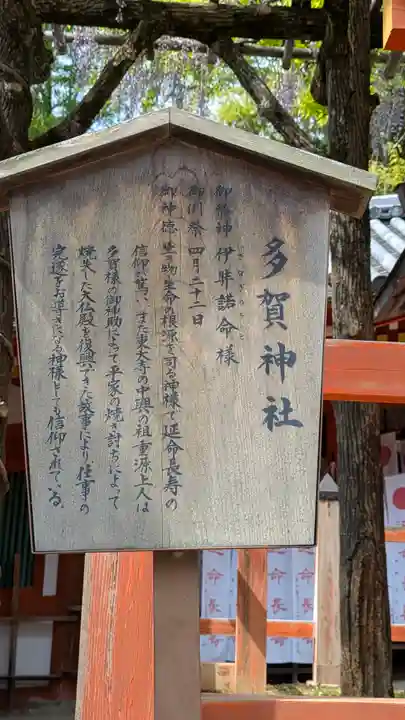 多賀神社
御祭神 伊弉諾命様
いざなぎのみこと
御例祭 四月二十二日
御神徳 生き物生命の根源を司る神様で延命長寿の
信仰が篤い、また東大寺の中興の祖重源上人は
多賀様の御神助によって平家の焼き討ちによって
焼失した大仏殿を復興できた故事により仕事の
完遂をお導きになる神様としても信仰されている。
命長
命長
命長